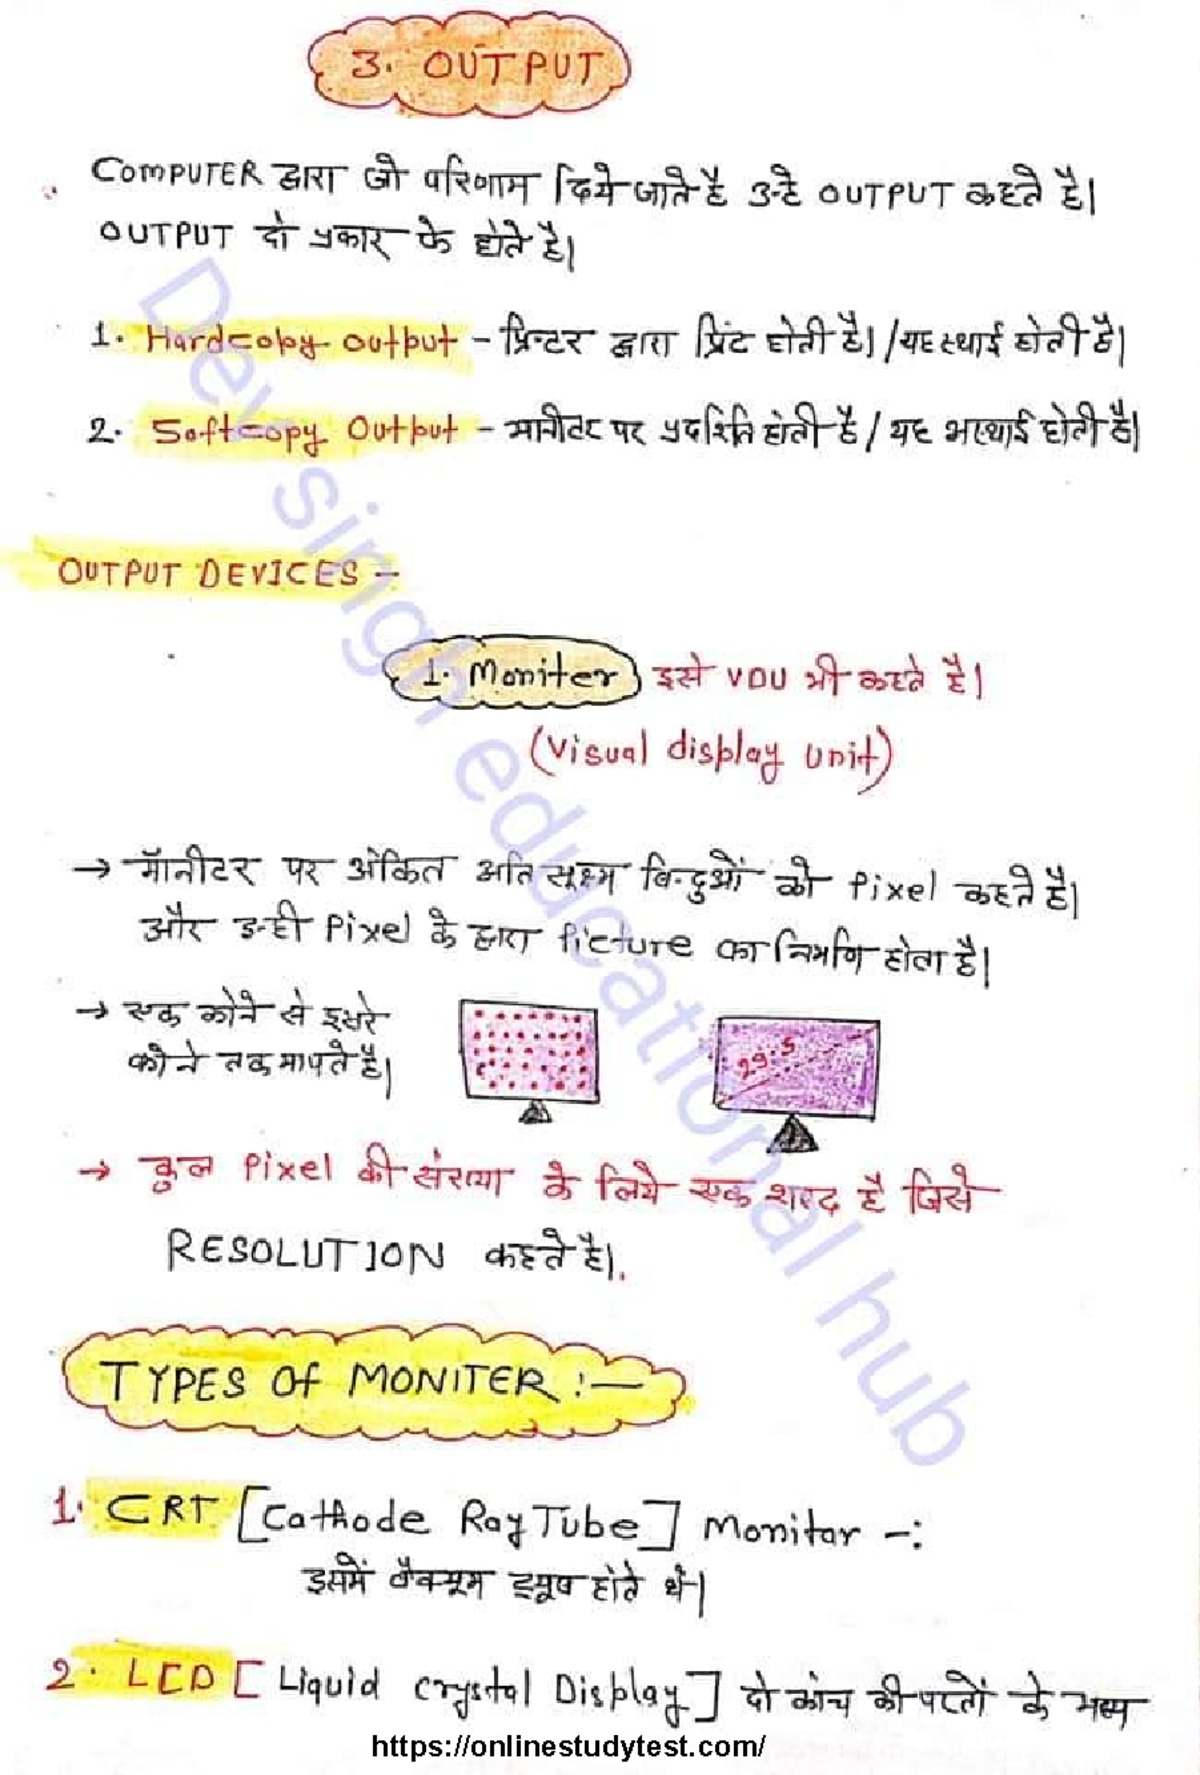 3. OUTPUT
COMPUTER द्वारा जो परिणाम दिये जाते है उन्हे OUTPUT कहते है।
OUTPUT दो प्रकार के होते है।
1. Hardcopy output - प्रिन्टर द्वारा प्रिंट होती है। / यह स्थाई होती है।
2. Softcopy Output - मानीटर पर प्रदर्शित होती है / यह अस्थाई होती है।
OUTPUT DEVICES -
1. Moniter इसे VDU भी कहते है।
(Visual display unit)
→ मॅानीटर पर अंकित अति सूक्ष्म बिन्दुओं को Pixel कहते है।
और इन्ही Pixel के द्वारा Picture का निर्माण होता है।
→ एक कोने से दूसरे
कोने तक मापते है।
29.5
→ कुल Pixel की संख्या के लिये एक शब्द है जिसे
RESOLUTION कहते है।.
TYPES Of MONITER :-
1. CRT [Cathode Ray Tube] Monitor -:
इसमें वैक्यूम ट्यूब होते थे।
2. LCD [Liquid crystal Display] दो कांच की परतों के मध्य
Dev singh educational hub
https://onlinestudytest.com/